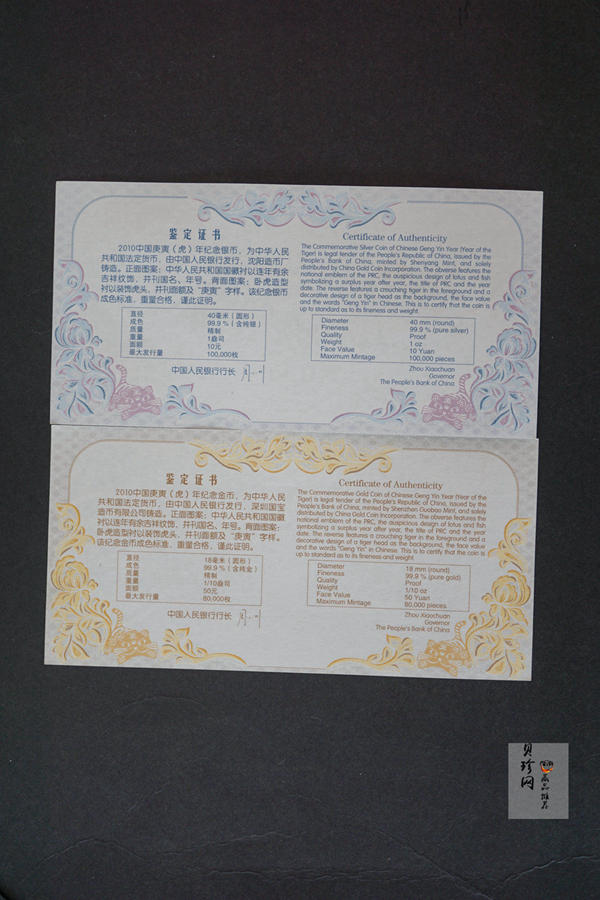 鉴定证书
2010中国庚寅(虎)年纪念银币,为中华人民
共和国法定货币,由中国人民银行发行,沈阳造币厂
铸造。正面图案:中华人民共和国国徽衬以连年有余
吉祥纹饰,并刊国名、年号。背面图案:卧虎造型
衬以装饰虎头,并刊面额及“庚寅”字样。该纪念银币
成色标准,重量合格,谨此证明。
直径 40毫米(圆形)
成色 99.9%(含纯银)
质量 精制
重量 1盎司
面额 10元
最大发行量 100,000枚
中国人民银行行长
Certificate of Authenticity
The Commemorative Silver Coin of Chinese Geng Yin Year (Year of the
Tiger) is legal tender of the People's Republic of China, issued by the
People's Bank of China, minted by Shenyang Mint, and solely
distributed by China Gold Coin Incorporation. The obverse features the
national emblem of the PRC, the auspicious design of lotus and fish
symbolizing a surplus year after year, the title of PRC and the year
date. The reverse features a crouching tiger in the foreground and a
decorative design of a tiger head as the background, the face value
and the words "Geng Yin" in Chinese. This is to certify that the coin is
up to standard as to its fineness and weight.
Diameter 40 mm (round)
Fineness 99.9% (pure silver)
Quality Proof
Weight 1 oz
Face Value 10 Yuan
Maximum Mintage 100,000 pieces
Zhou Xiaochuan
Governor
The People's Bank of China
鉴定证书
2010中国庚寅(虎)年纪念金币,为中华人民
共和国法定货币,由中国人民银行发行,深圳国宝
造币有限公司铸造。正面图案:中华人民共和国国徽
衬以连年有余吉祥纹饰,并刊国名、年号。背面图案:
卧虎造型衬以装饰虎头,并刊面额及“庚寅”字样。
该纪念金币成色标准,重量合格,谨此证明。
直径 18毫米(圆形)
成色 99.9%(含纯金)
质量 精制
重量 1/10盎司
面额 50元
最大发行量 80,000枚
中国人民银行行长
Certificate of Authenticity
The Commemorative Gold Coin of Chinese Geng Yin Year (Year of the
Tiger) is legal tender of the People's Republic of China, issued by the
People's Bank of China, minted by Shenzhen Guobao Mint, and solely
distributed by China Gold Coin Incorporation. The obverse features the
national emblem of the PRC, the auspicious design of lotus and fish
symbolizing a surplus year after year, the title of PRC and the year
date. The reverse features a crouching tiger in the foreground and a
decorative design of a tiger head as the background, the face value
and the words "Geng Yin" in Chinese. This is to certify that the coin is
up to standard as to its fineness and weight.
Diameter 18 mm (round)
Fineness 99.9% (pure gold)
Quality Proof
Weight 1/10 oz
Face Value 50 Yuan
Maximum Mintage 80,000 pieces
Zhou Xiaochuan
Governor
The People's Bank of China
贝珍网
藏品推荐